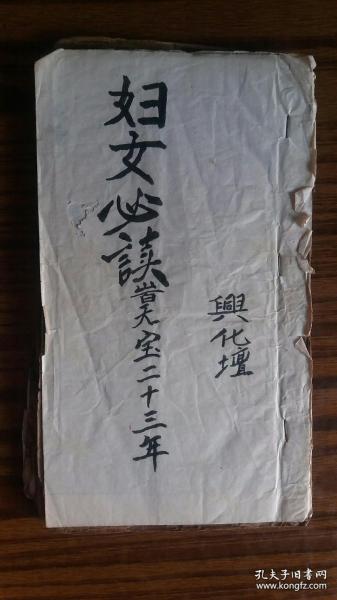 興化壇
妇女必读旹天宝二十三年
孔夫子旧书网
www.kongfz.com